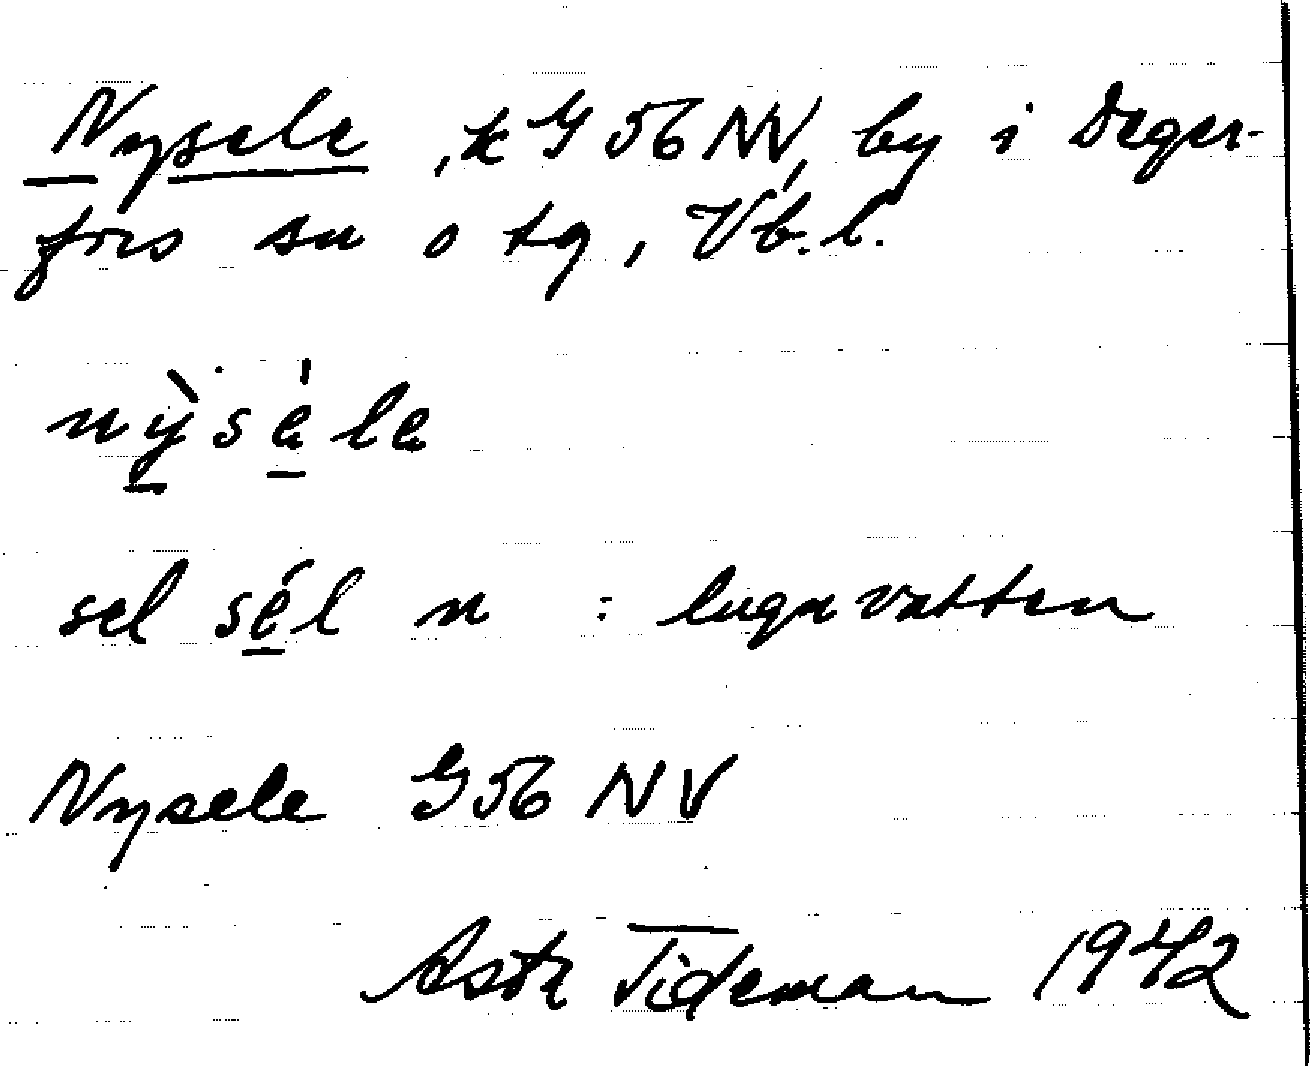 Nysele, k G 56 NV, by i Deger-
fors sn o tg, Vb.l.
nỳsèle
sel sél n : lugnvatten
Nysele G 56 NV
Tideman 1942